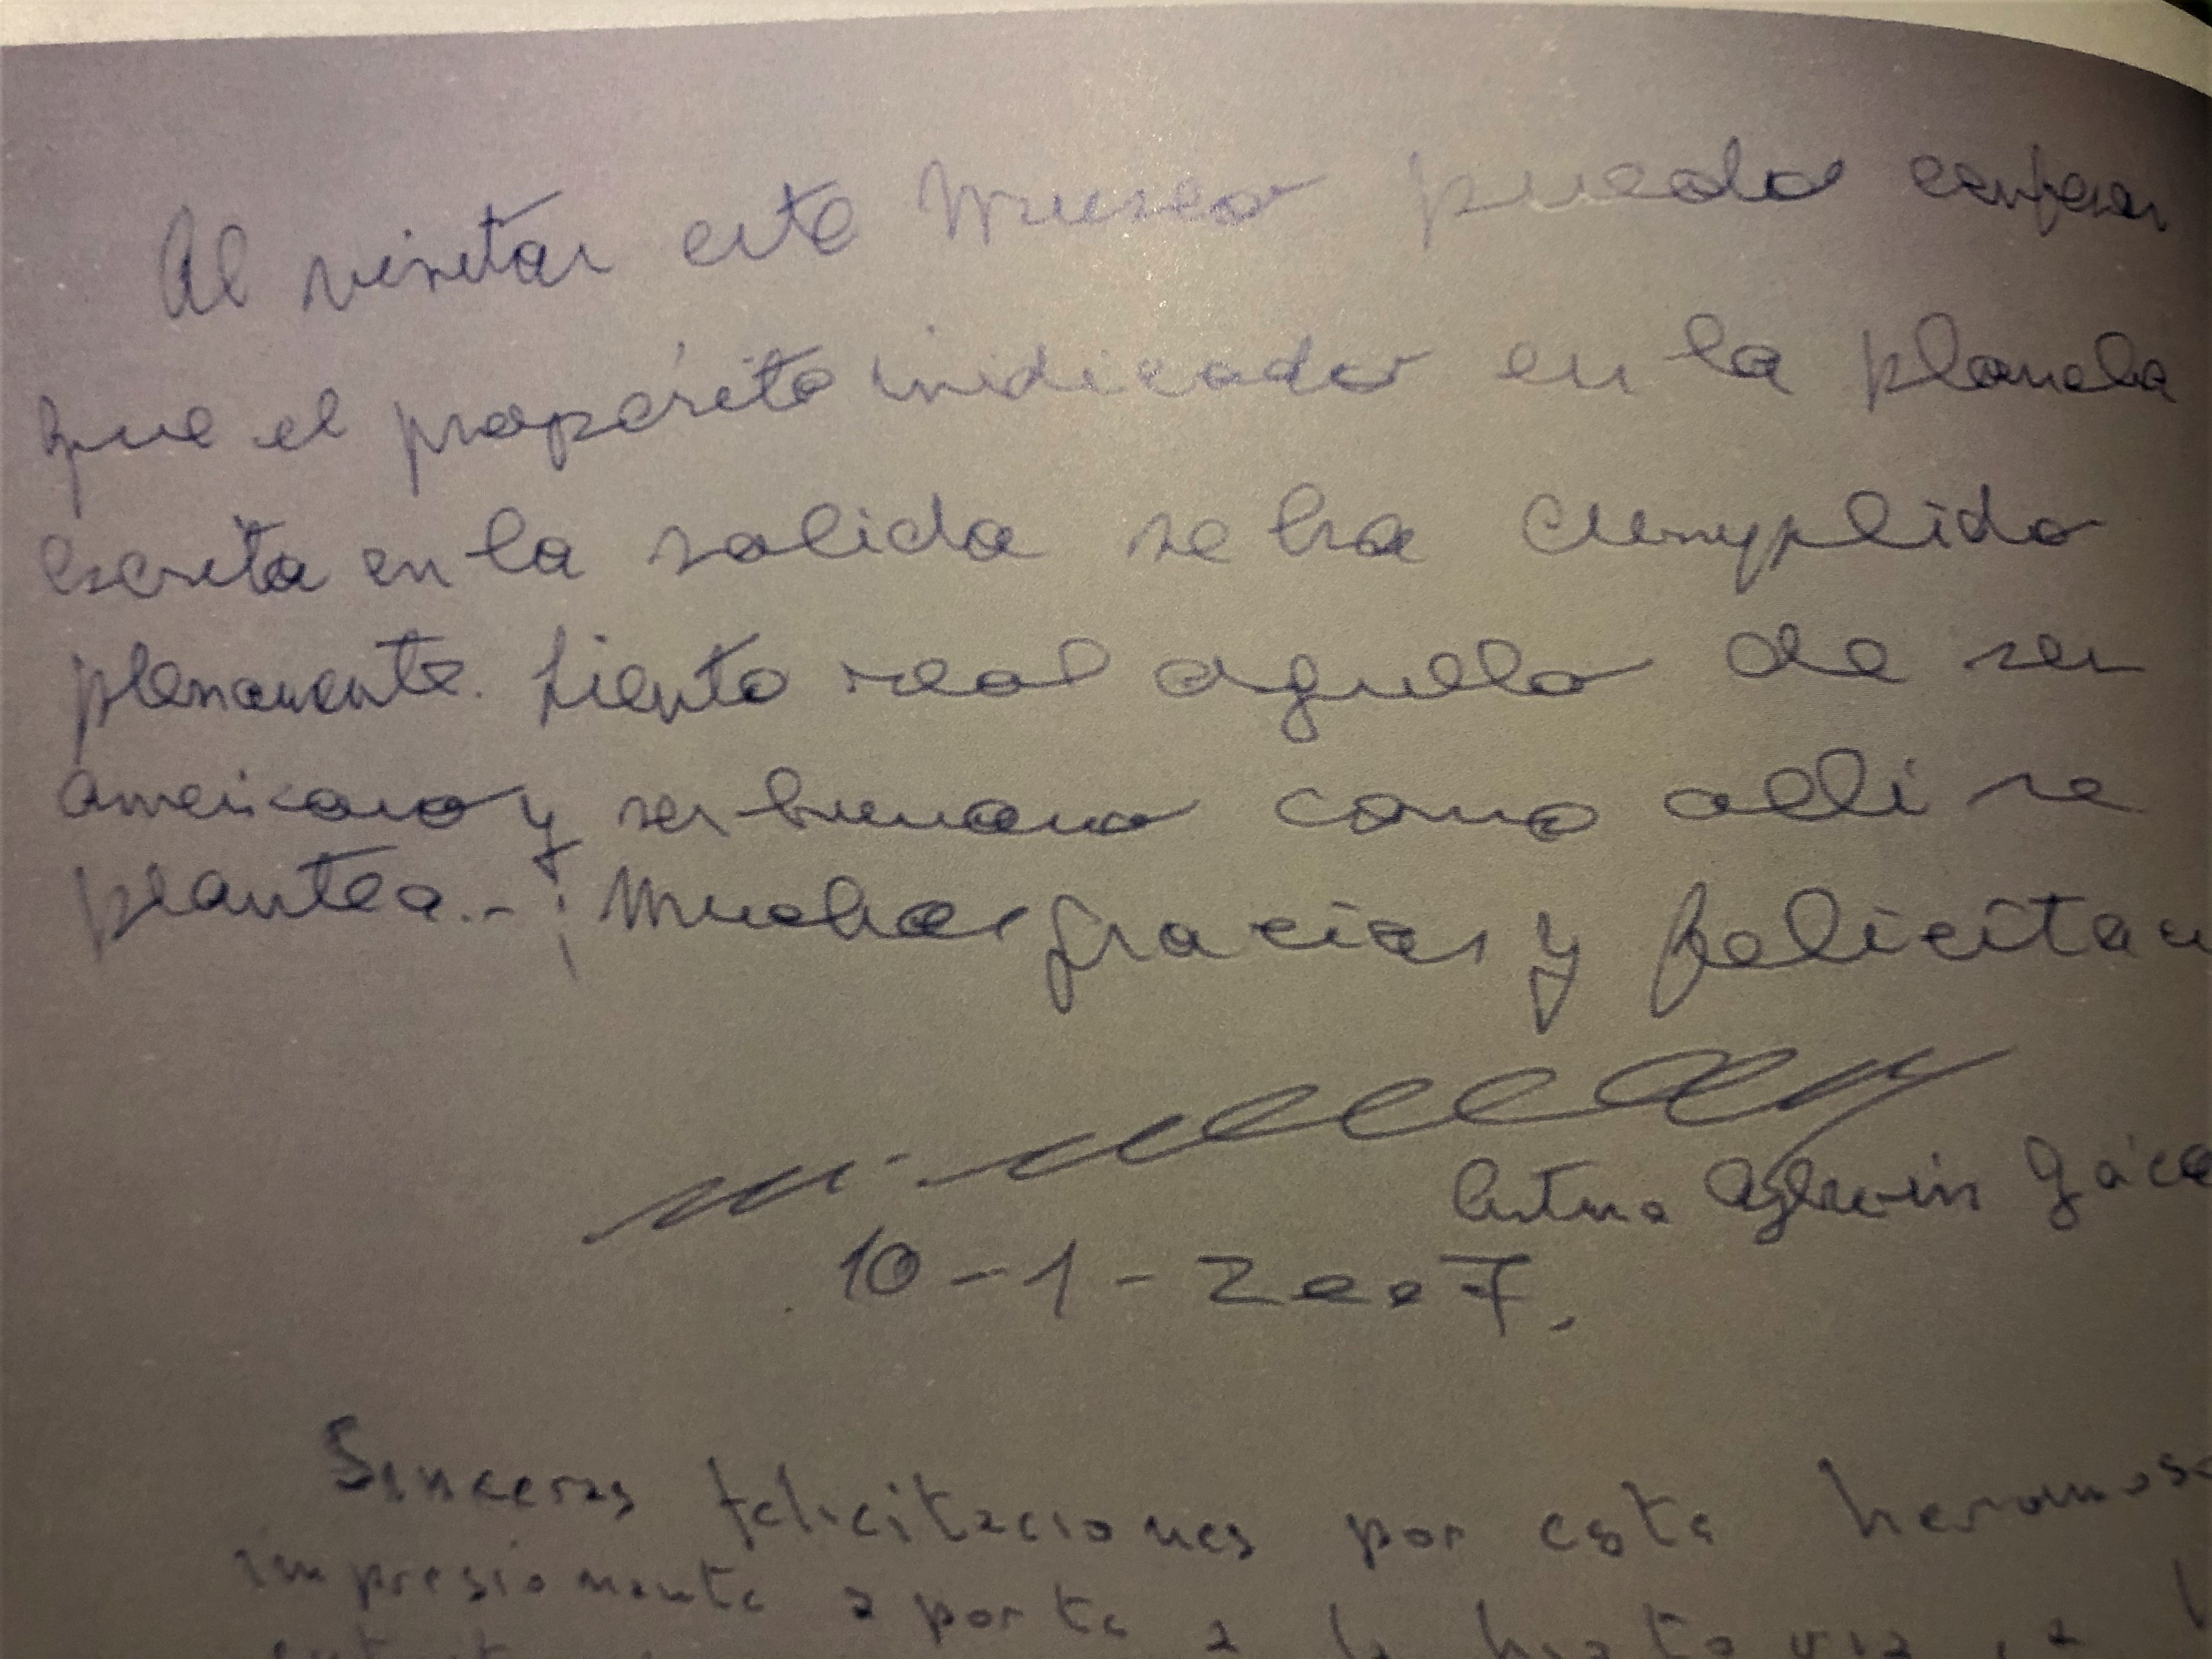 Al visitar este Museo puedo confesar
que el propósito indicado en la plancha
escrita en la salida se ha cumplido
plenamente. Siento real aquello de ser
americano y ser humano como allí se
plantea.- ¡Muchas gracias y felicitac
Arturo Aylwin Azóca
10-1-2007.
Sinceras felicitaciones por este hermoso
impresionante aporte a la historia, a